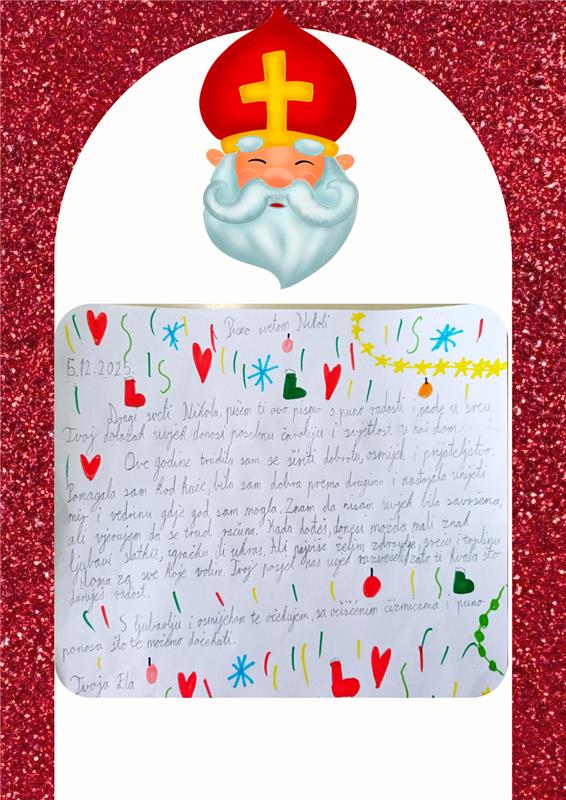 Pismo svetom Nikoli
5.12.2025.
Dragi sveti Nikola, pišem ti ovo pismo s puno radosti i nade u srcu.
Tvoj dolazak uvijek donosi posebnu čaroliju i svjetlost u naš dom.
Ove godine trudila sam se širiti dobrotu, osmijeh i prijateljstvo.
Pomagala sam kod kuće, bila sam dobra prema drugima i nastojala unijeti
mir i vedrinu gdje god sam mogla. Znam da nisam uvijek bila savršena,
ali vjerujem da se trud računa. Kada dođeš, donesi možda mali znak
ljubavi slatkiš, igračku ili ukras. Ali najviše želim zdravlje, sreću i toplinu
doma za sve koje volim. Tvoj posjet nas uvijek razveseli, zato ti hvala što
daruješ radost.
S ljubavlju i osmijehom te očekujem, sa očišćenim čizmicama i puno
ponosa što te možemo dočekati.
Tvoja Ela